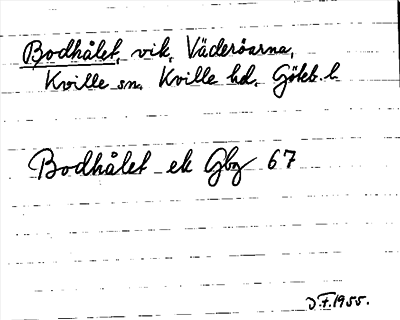 Bodhålet, vik, Väderöarna,
Kville sn. Kville hd. Göteb. l.
Bodhålet ek Gbg 67
D.F. 1955.